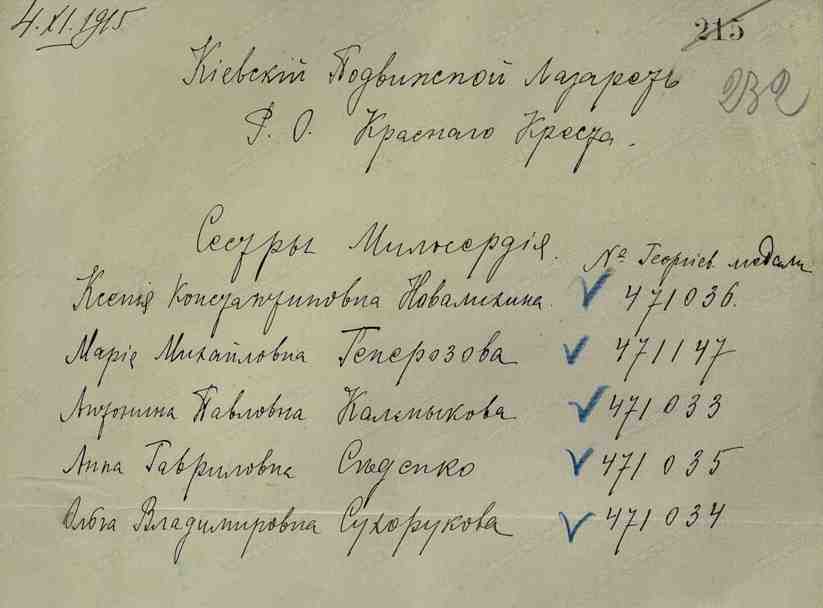 4.XI.1915
215
232
Кіевскій Подвижной Лазаретъ
Р. О. Краснаго Креста.
Сестры Милосердія. № Георгіев. медали
Ксенія Константиновна Новаликина. 471036.
Марія Михайловна Генерозова 471147
Антонина Павловна Калмыкова 471033
Анна Гавриловна Сѣденко 471035
Ольга Владимировна Сухорукова 471034